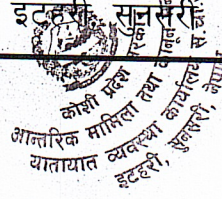 इटहरी, सुनसरी
कोशी प्रदेश सरकार
आन्तरिक मामिला तथा कानून
यातायात व्यवस्था कार्यालय
इटहरी, सुनसरी, नेपाल